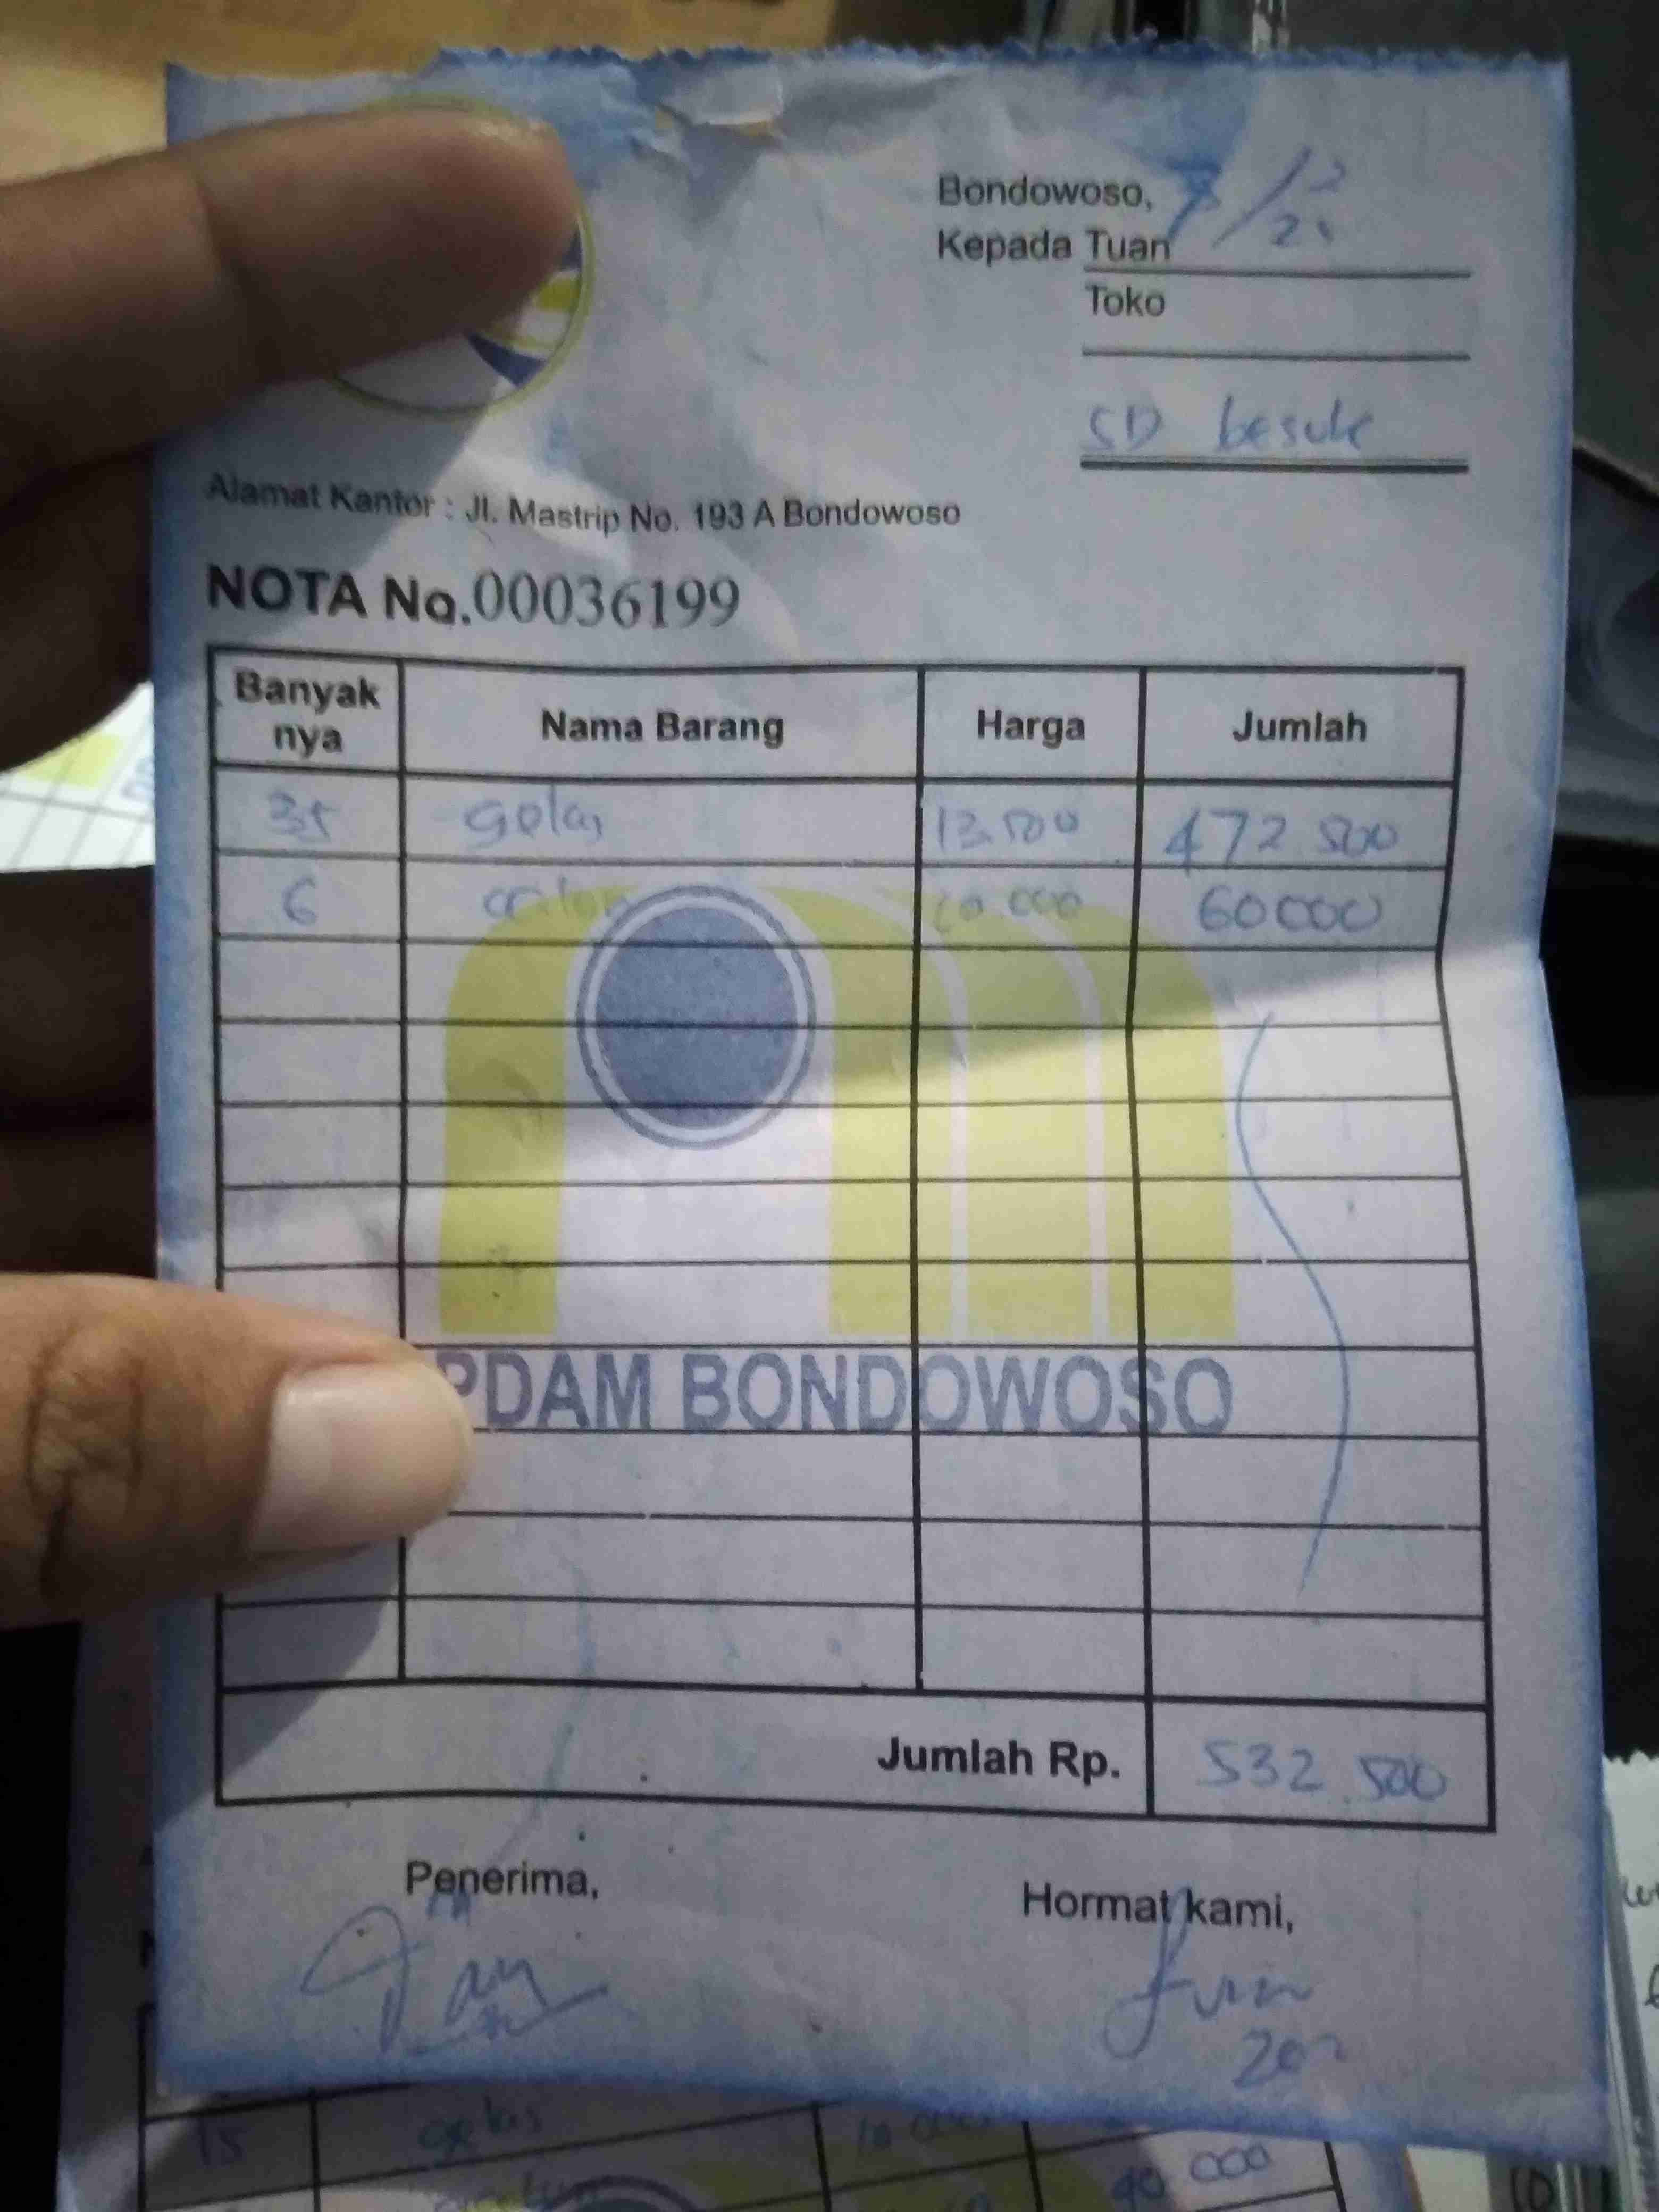 Bondowoso, 7/12
21
Kepada Tuan
Toko
SD besuk
Alamat Kantor : Jl. Mastrip No. 193 A Bondowoso
NOTA No.00036199
Banyak nya Nama Barang Harga Jumlah
35 gelas 13.500 472 500
6 10.000 60000
PDAM BONDOWOSO
Jumlah Rp. 532.500
Penerima,
Hormat kami,
15 gelas
90 000